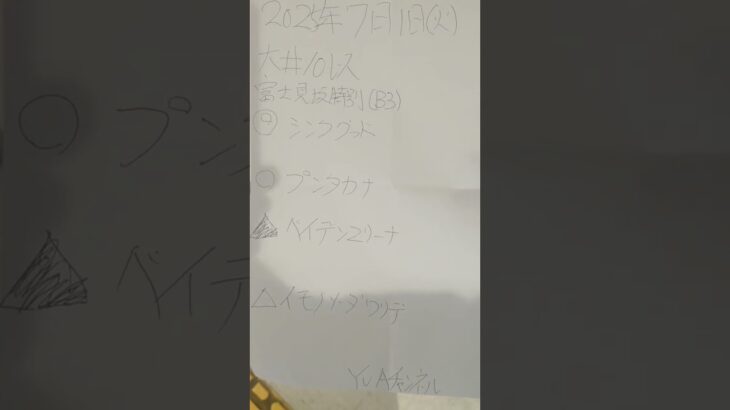 2025年7月1日(火)
大井10レス
富士見坂特別(B3)
◎ シンクグッド
○ プンタカナ
▲ ベイテンマリーナ
△イモノソーダワリデ
YUAチャンネル